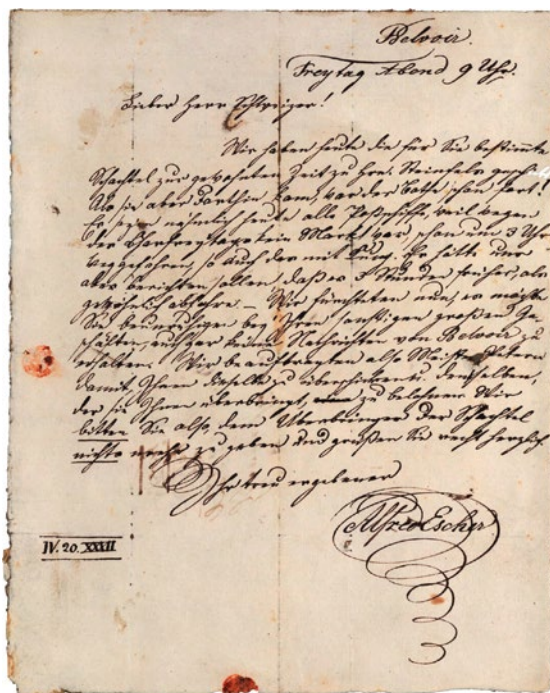 Belvoir.
Freytag Abend 9 Uhr.
Lieber Herr Schweizer!
Wir haben heute die für Sie bestimmte
Schachtel zur gewohnten Zeit zu Hrn. Steinfels geschickt.
Als sie aber dorthin kam, war der Bothe schon fort!
Es seien nähmlich heute alle Postschiffe, weil wegen
des Charfreytags kein Markt war, schon um 3 Uhr
weggefahren, so auch das mit
aber berichten sollen, daß es 3 Stunden früher, als
gewöhnlich abfahre. – Wir fürchteten nun, es möchte
Sie beunruhigen bey Ihren sonstigen großen Ge-
schäften, auch gar keine Nachrichten von Belvoir zu
erhalten. Wir beauftragten also Meister Petern
damit Ihnen dieselbe zu überschicken u. denselben,
der sie Ihnen überbringt, zu belohnen. Wir
bitten Sie also, dem Überbringer der Schachtel
nichts mehr zu geben und grüßen Sie recht herzlich.
Ihr treu ergebener
Alfred Escher
IV. 20. XXXII